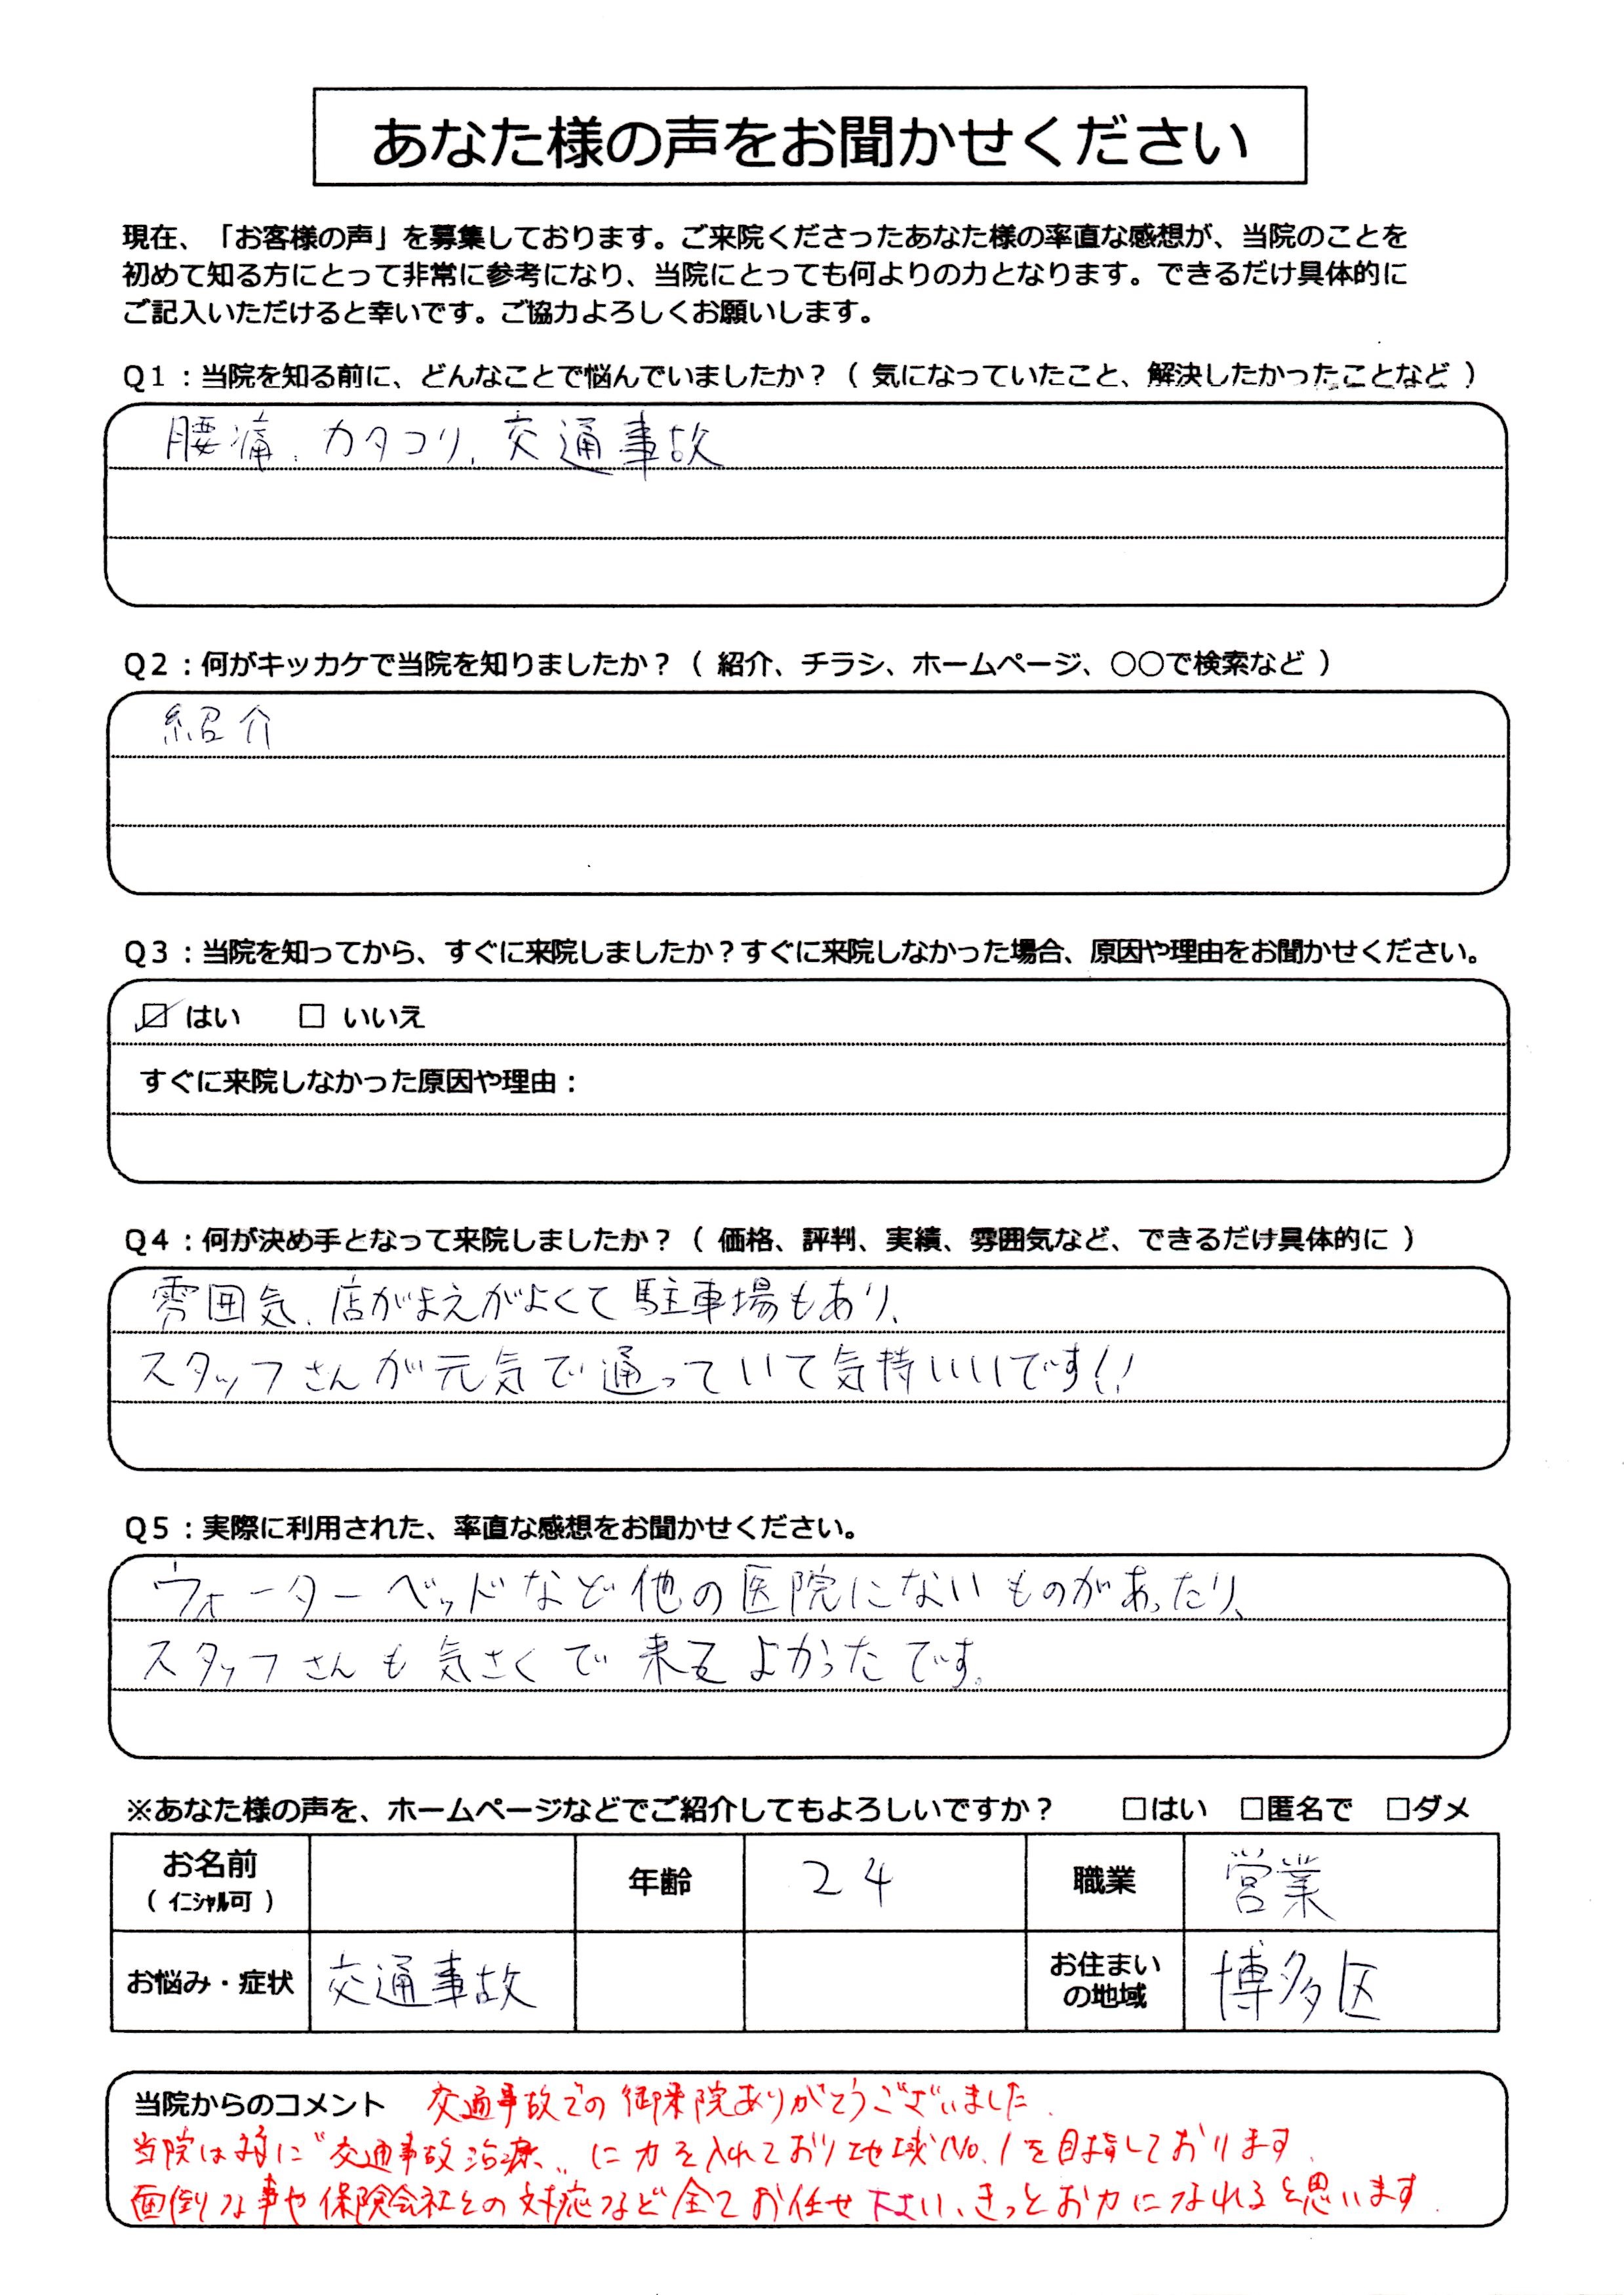 あなた様の声をお聞かせください
現在、「お客様の声」を募集しております。ご来院くださったあなた様の率直な感想が、当院のことを
初めて知る方にとって非常に参考になり、当院にとっても何よりの力となります。できるだけ具体的に
ご記入いただけると幸いです。ご協力よろしくお願いします。
Q1：当院を知る前に、どんなことで悩んでいましたか？（ 気になっていたこと、解決したかったことなど ）
腰痛、カタコリ、交通事故
Q2：何がキッカケで当院を知りましたか？（ 紹介、チラシ、ホームページ、○○で検索など ）
紹介
Q3：当院を知ってから、すぐに来院しましたか？すぐに来院しなかった場合、原因や理由をお聞かせください。
☑ はい □ いいえ
すぐに来院しなかった原因や理由：
Q4：何が決め手となって来院しましたか？（ 価格、評判、実績、雰囲気など、できるだけ具体的に ）
雰囲気、店がまえがよくて駐車場もあり、
スタッフさんが元気で通っていて気持いいです!!
Q5：実際に利用された、率直な感想をお聞かせください。
ウォーターベッドなど他の医院にないものがあったり、
スタッフさんも気さくで来てよかったです。
※あなた様の声を、ホームページなどでご紹介してもよろしいですか？ □はい □匿名で □ダメ
お名前 年齢 24 職業 営業
（ イニシャル可 ）
お悩み・症状 交通事故 お住まいの地域 博多区
当院からのコメント 交通事故での御来院ありがとうございました。
当院は特に"交通事故治療"に力を入れており地域No.1を目指しております。
面倒な事や保険会社との対応など全てお任せ下さい、きっとお力になれると思います。